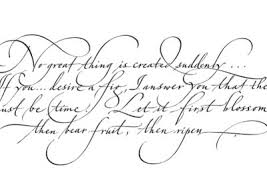 No great thing is created suddenly ...
If you... desire a fig, I answer you that the
ust be time. Let it first blossom
then bear fruit, then ripen